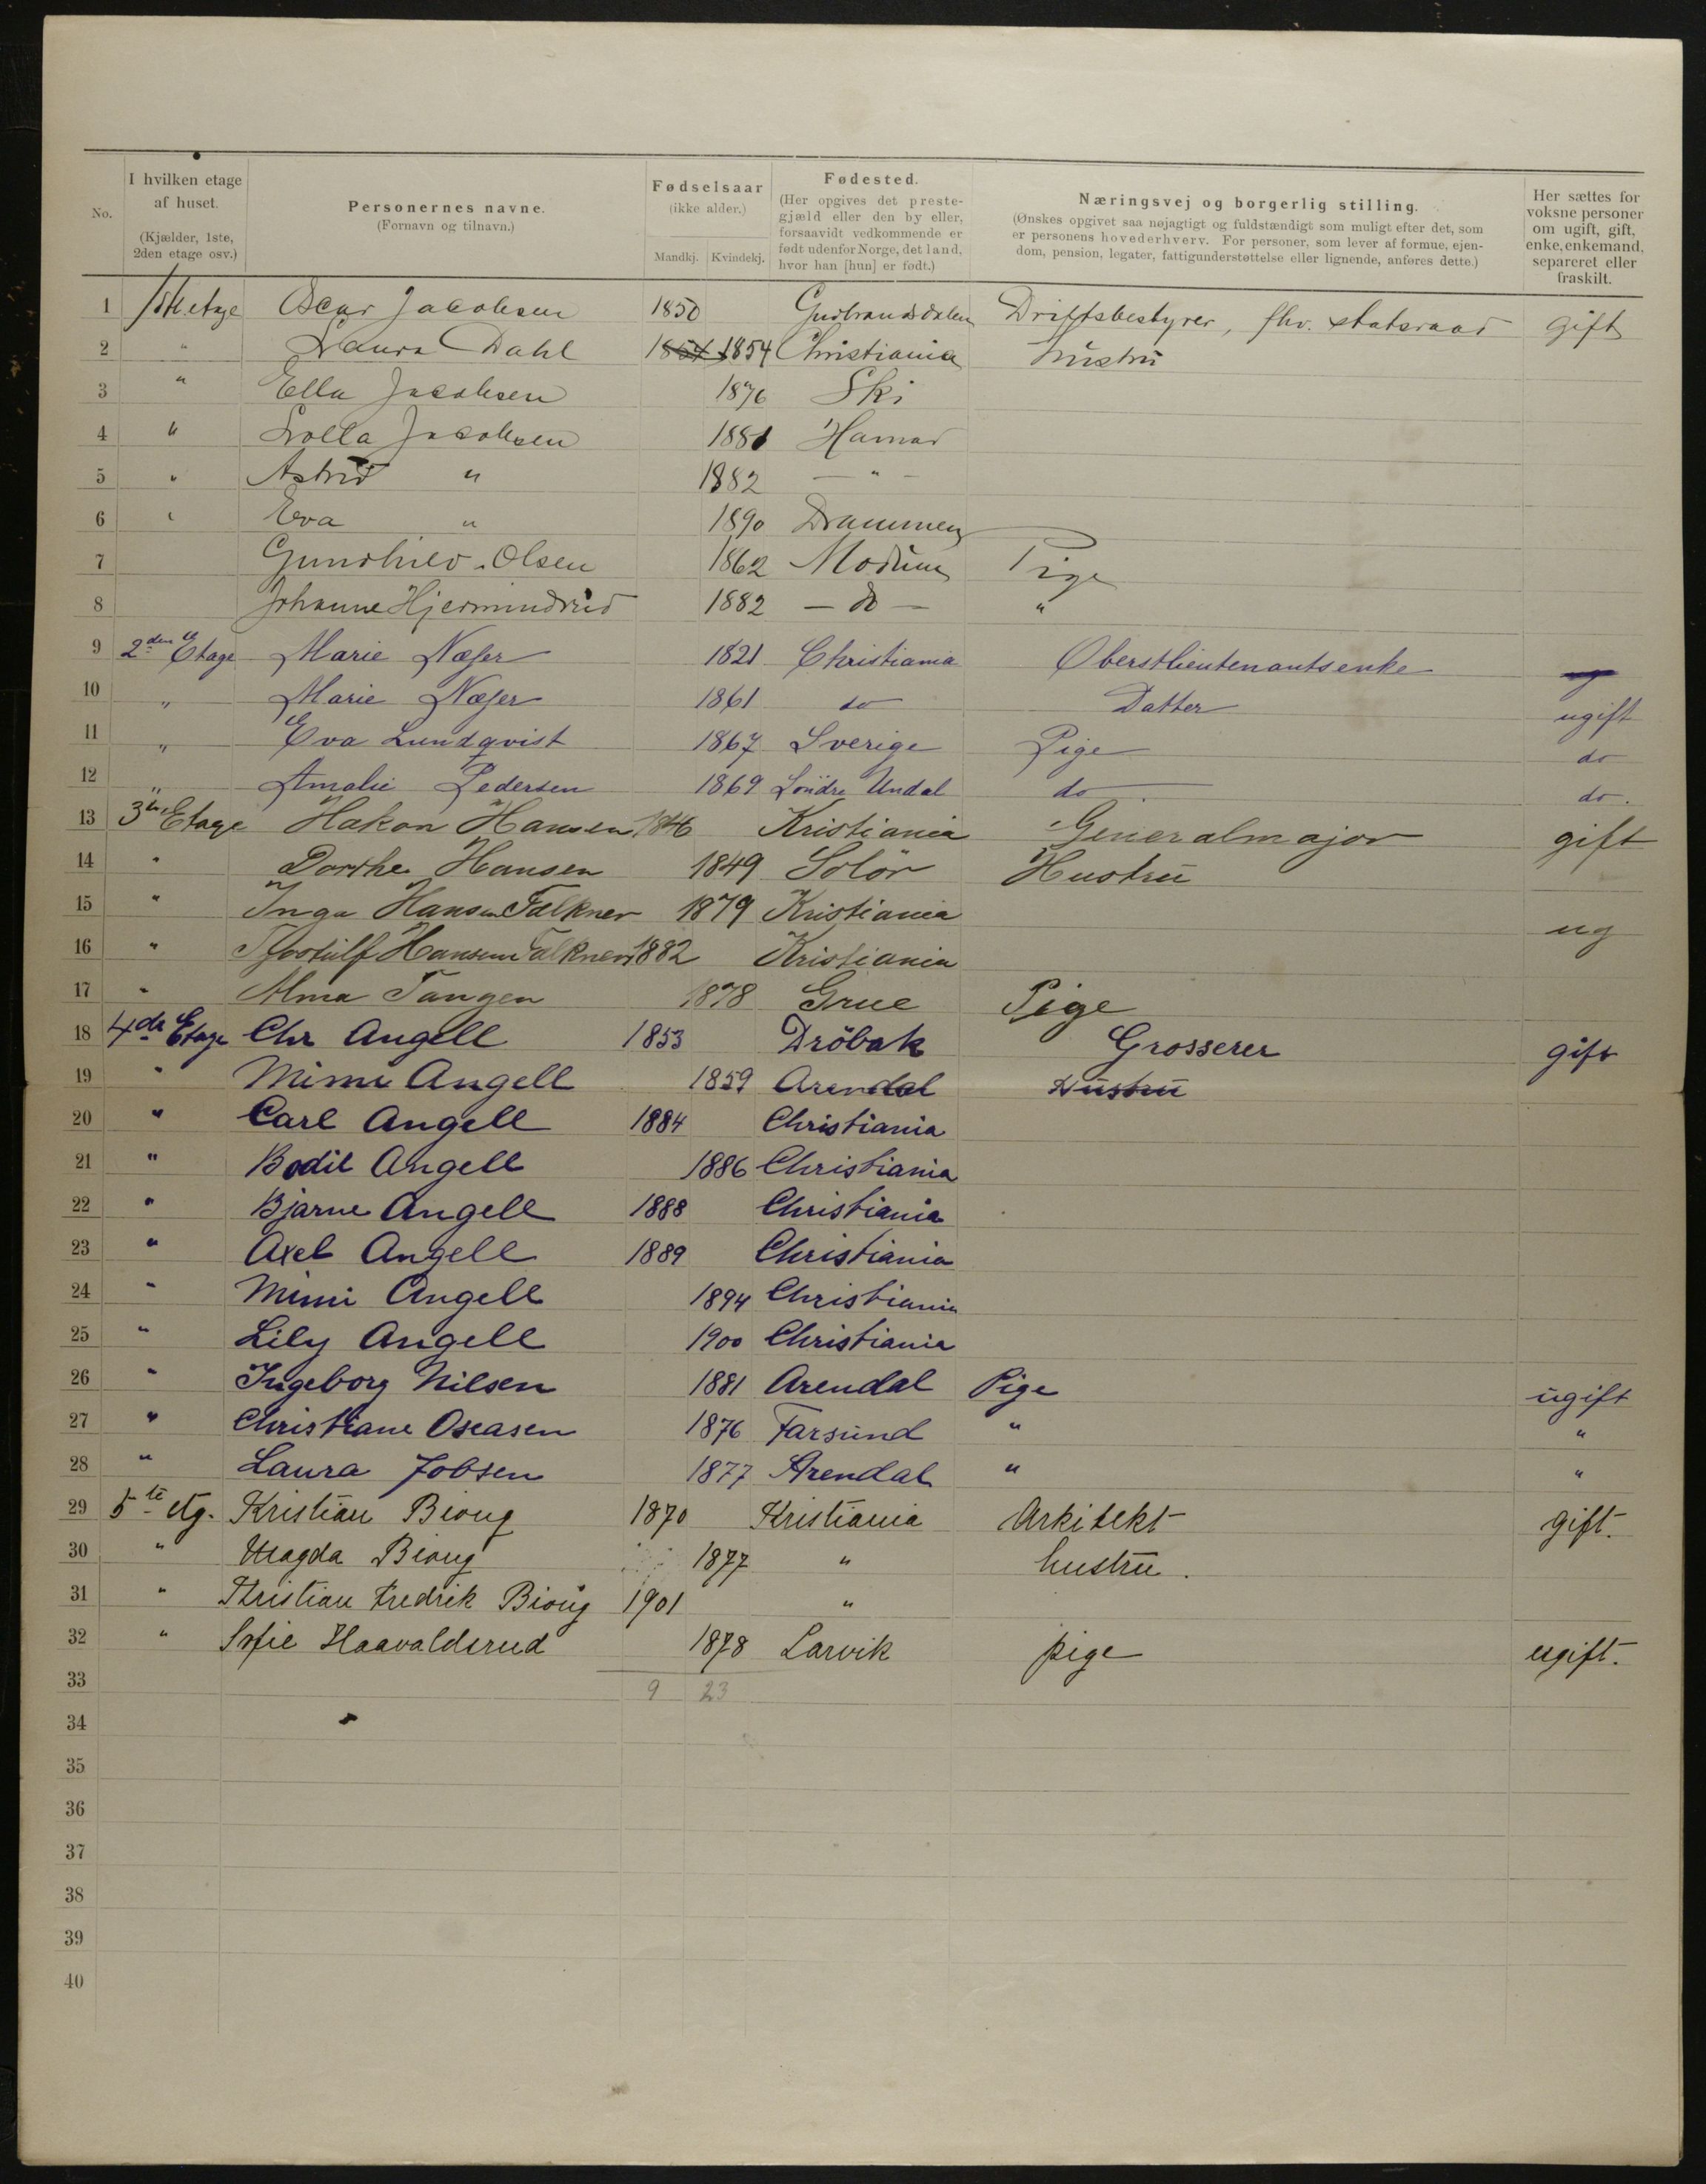 No.
I hvilken etage af huset. (Kjælder, 1ste, 2den etage osv.)
Personernes navne. (Fornavn og tilnavn.)
Fødselsaar (ikke alder.) Mandkj. Kvindekj.
Fødested. (Her opgives det prestegjæld eller den by eller, forsaavidt vedkommende er født udenfor Norge, det land, hvor han [hun] er født.)
Næringsvej og borgerlig stilling. (Ønskes opgivet saa nøjagtigt og fuldstændigt som muligt efter det, som er personens hovederhverv. For personer, som lever af formue, ejendom, pension, legater, fattigunderstøttelse eller lignende, anføres dette.)
Her sættes for voksne personer om ugift, gift, enke, enkemand, separeret eller fraskilt.
1 1ste etage Oscar Jacobsen 1850 Gudbrandsdalen Driftsbestyrer, fhv. statsraad gift
2 " Laura Dahl 1854 1854 Christiania hustru
3 " Ella Jacobsen 1876 Ski
4 " Lolla Jacobsen 1881 Hamar
5 " Astrid " 1882 — " —
6 " Eva " 1890 Drammen
7 Gundhild Olsen 1862 Modum Pige
8 Johanne Hjermindrud 1882 — do — "
9 2den Etage Marie Næser 1821 Christiania Oberstlieutenantsenke
10 " Marie Næser 1861 do Datter ugift
11 " Eva Lundqvist 1867 Sverige Pige do
12 " Amalie Pedersen 1869 Söndre Undal do do.
13 3die Etage Hakon Hansen 1846 Kristiania Generalmajor gift
14 " Dorthe Hansen 1849 Solör Hustru
15 " Inga Hansen Falkner 1879 Kristiania ug
16 " Hansen Falkner 1882 Kristiania
17 " Alma Tangen 1878 Grue Pige
18 4de Etage Chr Angell 1853 Dröbak Grosserer gift
19 " Mimi Angell 1859 Arendal Hustru
20 " Carl Angell 1884 Christiania
21 " Bodil Angell 1886 Christiania
22 " Bjarne Angell 1888 Christiania
23 " Axel Angell 1889 Christiania
24 " Mimi Angell 1894 Christiania
25 " Lily Angell 1900 Christiania
26 " Ingeborg Nilsen 1881 Arendal Pige ugift
27 " Christiane Oseasen 1876 Farsund " "
28 " Laura Jobsen 1877 Arendal " "
29 5te etg. Kristian Biong 1870 Kristiania Arkitekt gift.
30 " Magda Biong 1877 " hustru.
31 " Kristian Fredrik Biong 1901 "
32 " Sofie Haavaldsrud 1878 Larvik pige ugift.
33 9 23
34
35
36
37
38
39
40